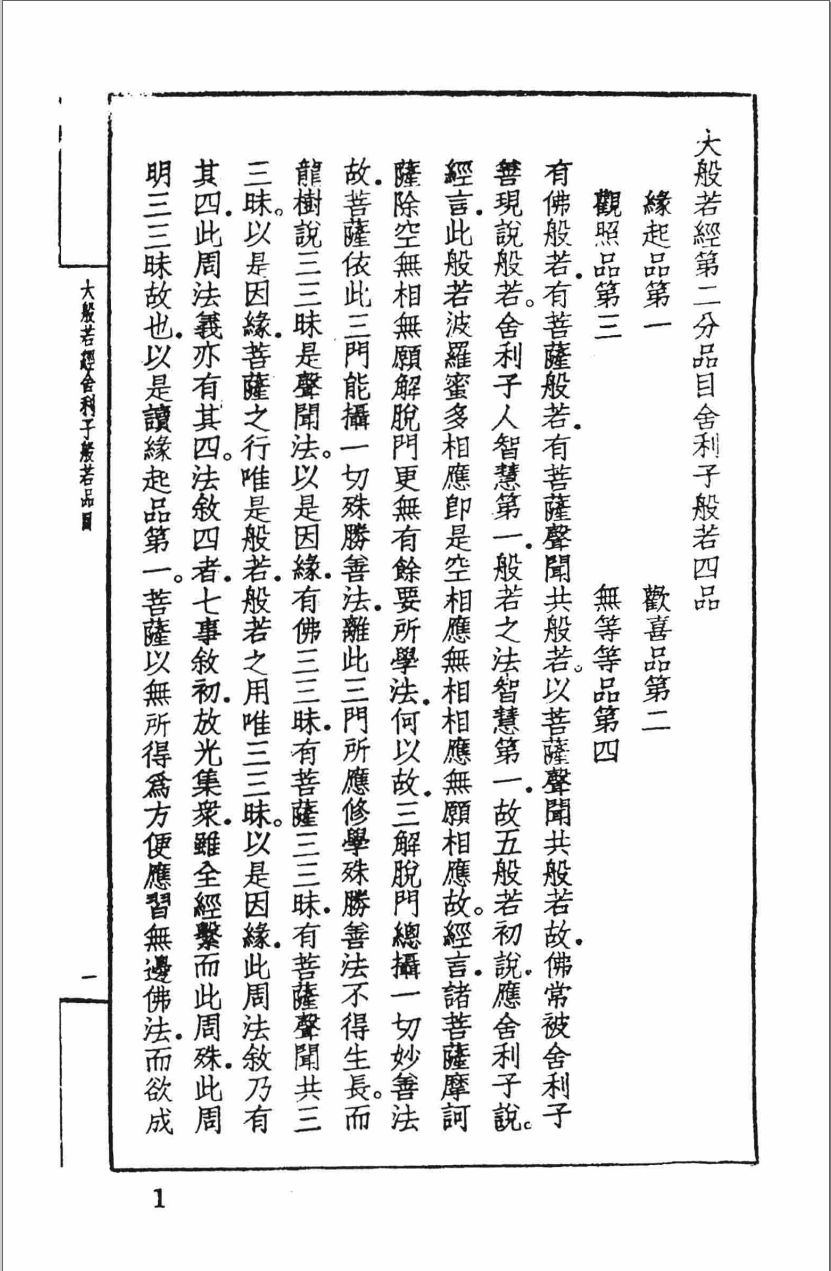 大般若經第二分品目舍利子般若四品
緣起品第一　歡喜品第二
觀照品第三　無等等品第四
有佛般若．有菩薩般若．有菩薩聲聞共般若。以菩薩聲聞共般若故．佛常被舍利子
善現說般若。舍利子人智慧第一．般若之法智慧第一．故五般若初說．應舍利子說。
經言．此般若波羅蜜多相應卽是空相應無相相應無願相應故。經言．諸菩薩摩訶
薩除空無相無願解脫門更無有餘要所學法．何以故．三解脫門總攝一切妙善法
故．菩薩依此三門能攝一切殊勝善法．離此三門所應修學殊勝善法不得生長。而
龍樹說三三昧是聲聞法。以是因緣．有佛三三昧．有菩薩三三昧．有菩薩聲聞共三
三昧。以是因緣．菩薩之行唯是般若．般若之用唯三三昧。以是因緣．此周法敘乃有
其四．此周法義亦有其四。法敘四者．七事敘初．放光集衆．雖全經繫而此周殊．此周
明三三昧故也．以是讀緣起品第一。菩薩以無所得爲方便應習無邊佛法．而欲成
大般若經舍利子般若品目
一
1